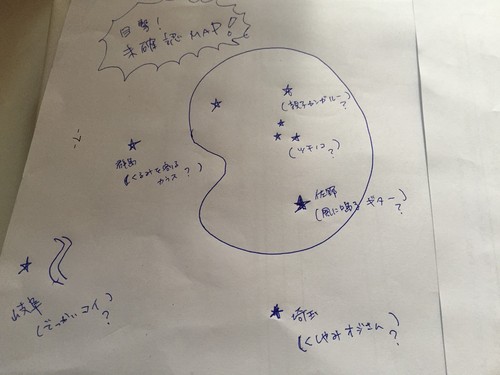 目撃!
未確認MAP!
(親子カンガルー?)
(ツチノコ?)
群馬
(くるみを割る
カラス?)
佐野
(風に鳴るギター?)
岐阜
(でっかいコイ?)
埼玉
(くしゃみオジさん?)